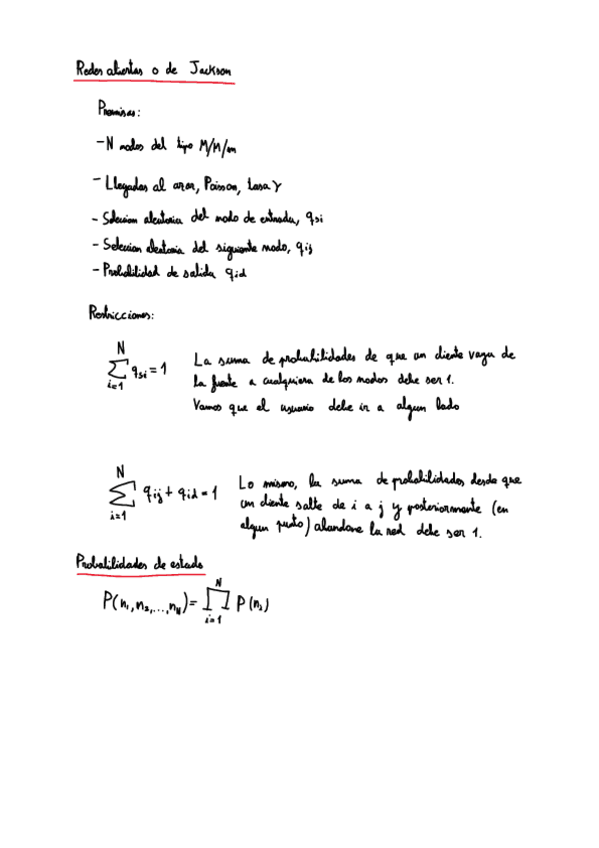 Redes abiertas o de Jackson
Premisas:
- N nodos del tipo M/M/m
- Llegadas al azar, Poisson, tasa γ
- Seleccion aleatoria del nodo de entrada, qsi
- Seleccion aleatoria del siguiente nodo, qij
- Probabilidad de salida qid
Restricciones:
N
∑ qsi = 1
i=1
La suma de probabilidades de que un cliente vaya de
la fuente a cualquiera de los nodos debe ser 1.
Vamos que el usuario debe ir a algun lado
N
∑ qij + qid = 1
i=1
Lo mismo, la suma de probabilidades desde que
un cliente salte de i a j y posteriormente (en
algun punto) abandone la red debe ser 1.
Probabilidades de estado
N
P(n1, n2, ..., nN) = ∏ P(ni)
i=1